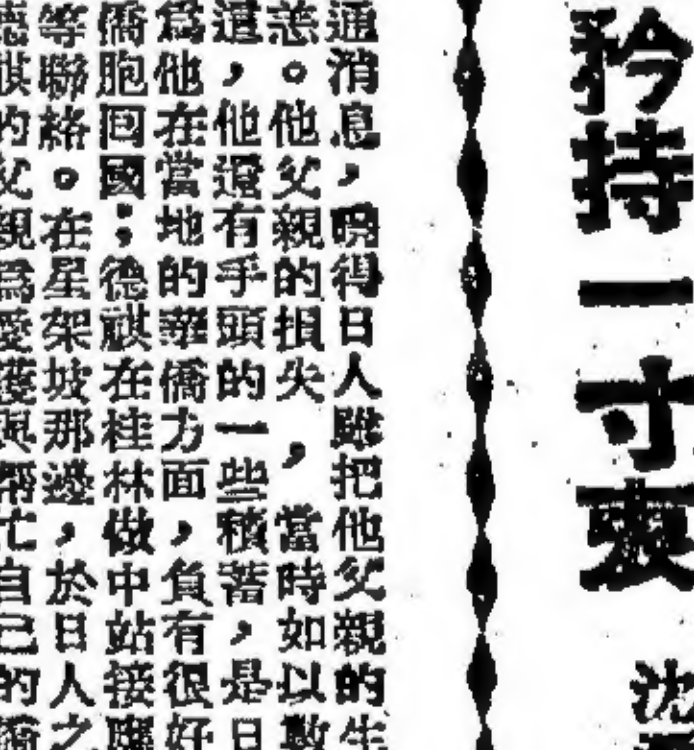 矜持一寸衷
沈
通消息，曉得日人雖把他父親的生
恙。他父親的損失，當時如以數
還，他還有手頭的一些積蓄，是日
為他在當地的華僑方面，負有很好
僑胞回國；德祺在桂林做中站接應
等聯絡。在星架坡那邊，於日人之
德祺的父親為愛護與幫忙自己的